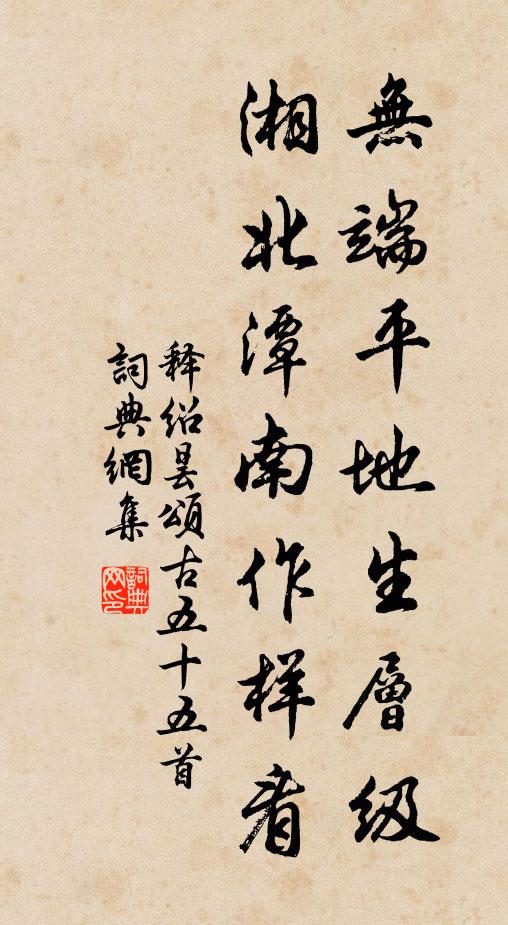 無端平地生層级
湘北潭南作样看
释绍昙頌古五十五首
詞典網集
詞典网印